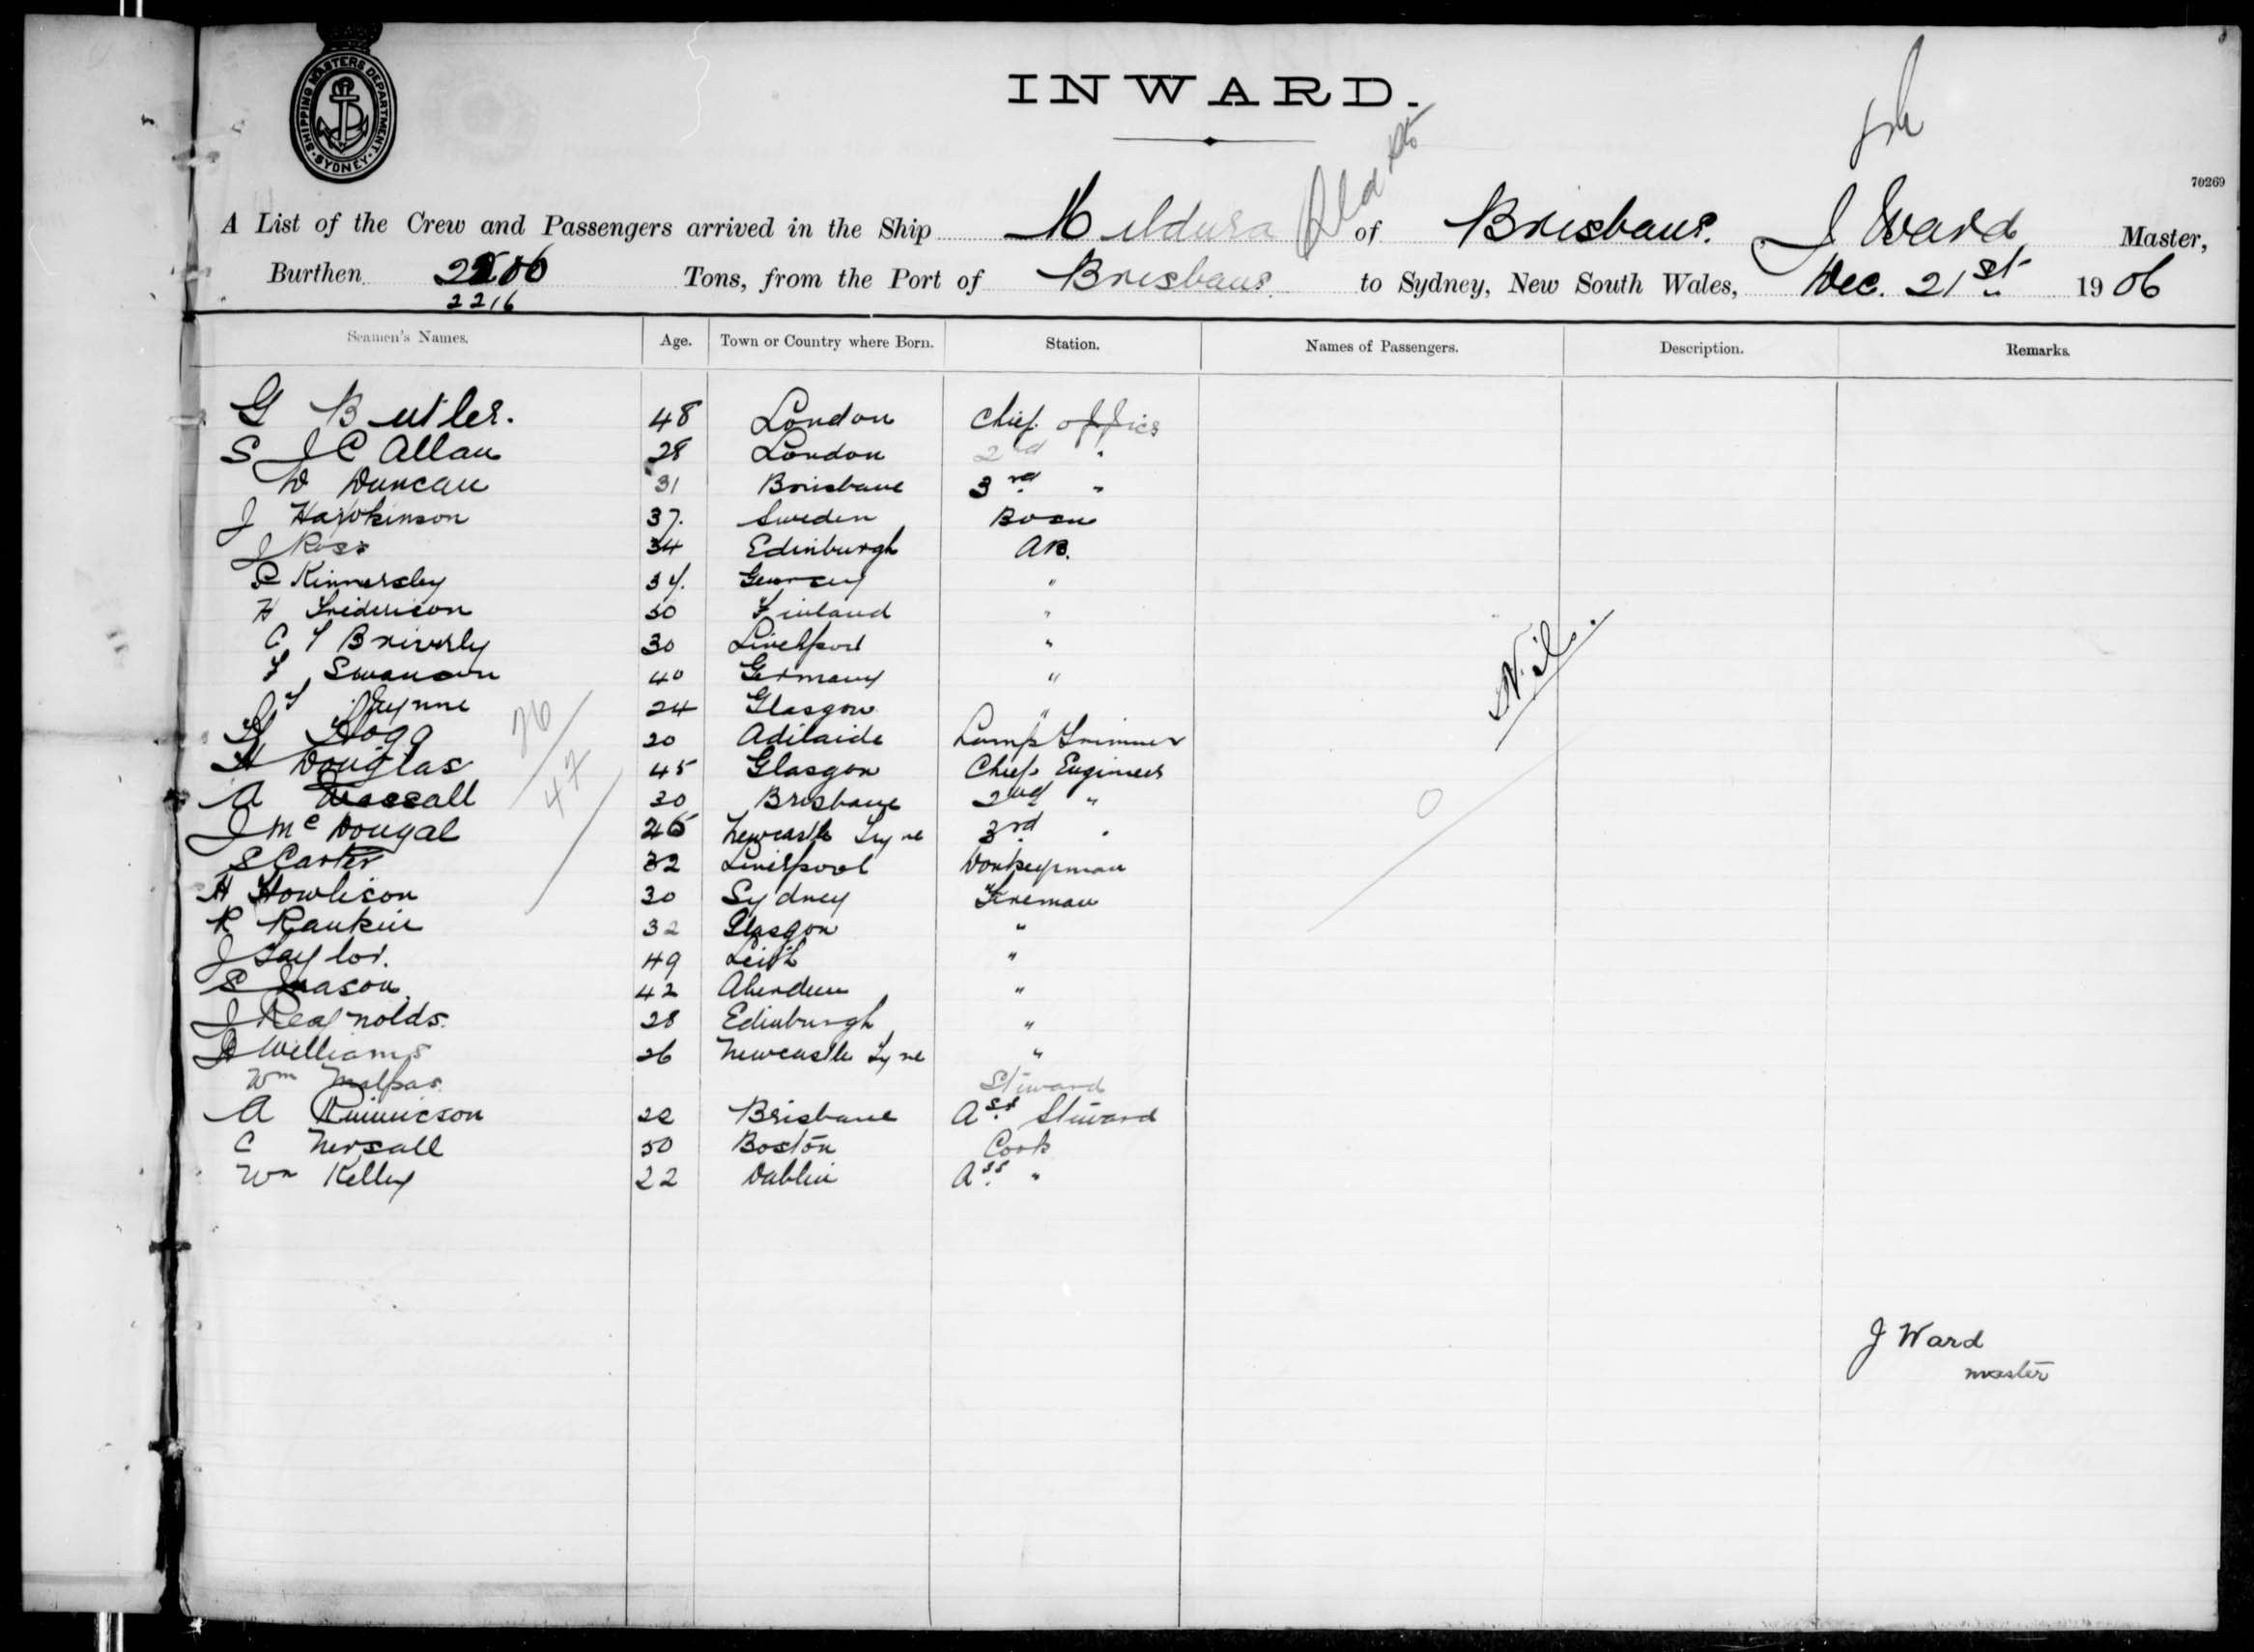 SHIPPING MASTERS DEPARTMENT. SYDNEY.
INWARD.
70269
A List of the Crew and Passengers arrived in the Ship Mildura of Brisbane. J Ward Master,
Burthen 2200 Tons, from the Port of Brisbane. to Sydney, New South Wales, Dec. 21st 1906
2216
Seamen's Names. Age. Town or Country where Born. Station. Names of Passengers. Description. Remarks.
G Butler. 48 London Chief Officer
S J C Allan 28 London 2nd "
W Duncan 31 Brisbane 3rd "
J 37. Sweden Bosn
J Ross 34 Edinburgh AB.
Kinnersley 34. "
H 30 Finland "
C F Brierly 30 Liverpool "
F Swanson 40 Germany "
24 Glasgow "
Hogg 20 Adilaide Lamp Trimmer
H Douglas 45 Glasgow Chief Engineer
A 30 Brisbane 2nd "
J McDougal 26 Newcastle Tyne 3rd "
S Carter 32 Liverpool Donkeyman
H Howlison 30 Sydney Fireman
R Rankin 32 Glasgow "
J Taylor. 49 Leith "
S Mason. 42 Aberdeen "
J Reynolds. 28 Edinburgh "
Williams 26 Newcastle Tyne "
Wm Malpas Steward
A 22 Brisbane Asst Steward
C Nersall 50 Boston Cook
Wm Kelley 22 Dublin Ass "
26
47
Nil.
0
J Ward
master